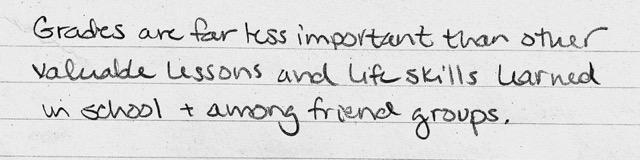 Grades are far less important than other
valuable lessons and life skills learned
in school + among friend groups.